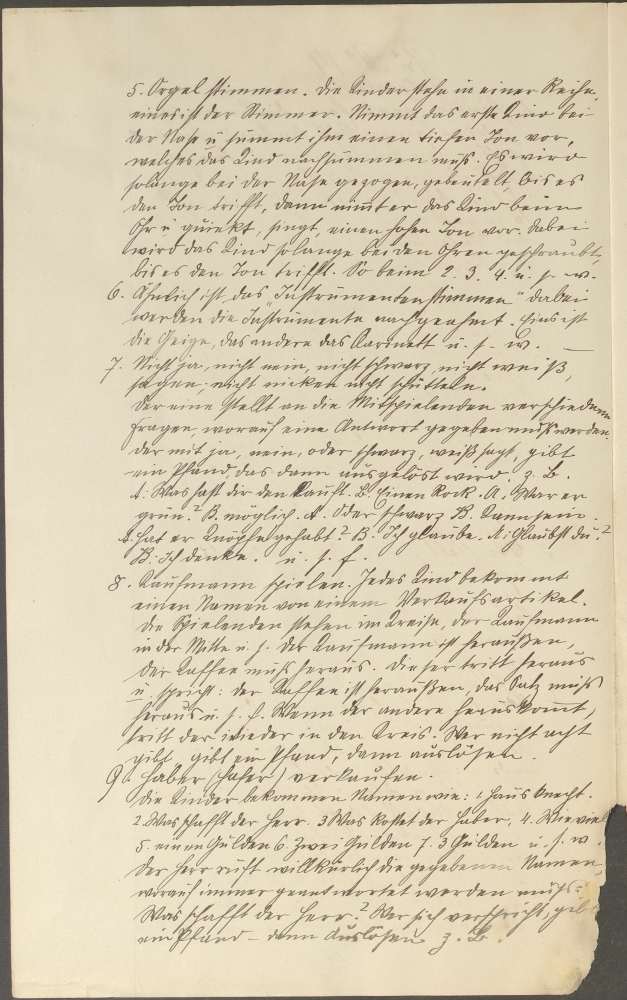 5. Orgel stimmen. Die Kinder stehen in einer Reihe,
eines ist der Stimmer. Nimmt das erste Kind bei
der Nase u summt ihm einen tiefen Ton vor,
welches das Kind nachsummen muß. Es wird
solange bei der Nase gezogen, gebeutelt, bis es
den Ton trifft, dann nimmt er das Kind beim
Ohr u quiekt, singt, einen hohen Ton vor. Dabei
wird das Kind solange bei den Ohren geschraubt,
bis es den Ton trifft. So beim 2. 3. 4. u. s. w.
6. Ähnlich ist das "Instrumentenstimmen" dabei
werden die Instrumente nachgeahmt. Eins ist
die Geige, das andere das Klarinett u. s. w.
7. Nicht ja, nicht nein, nicht schwarz, nicht weiß,
sagen; nicht nicken nicht schütteln.
Der eine stellt an die Mitspielenden verschiedene
Fragen, worauf eine Antwort gegeben muß werden.
Der mit ja, nein, oder schwarz, weiß sagt, gibt
ein Pfand, das dann ausgelöst wird. z. B.
A: Was hast dir den kauft. B: Einen Rock. A. War er
grün? B. möglich. A. Oder schwarz B. Kann sein.
A. Hat er Knöpfe gehabt? B. Ich glaube. A: Glaubst du?
B: Ich denke. u. s. f.
8. Kaufmann spielen. Jedes Kind bekommt
einen Namen von einem Verkaufsartikel.
Die Spielenden stehen im Kreise, der Kaufmann
in der Mitte u. s. Der Kaufmann ist heraußen,
der Kaffee muß heraus. Dieser tritt heraus
u. spricht: der Kaffee ist heraußen, das Salz muß
heraus u. s. f. Wenn der andere herauskommt,
tritt der wieder in den Kreis. Wer nicht acht
gibt, gibt ein Pfand, dann auslösen.
9. Haber (Hafer) verkaufen.
Die Kinder bekommen Namen wie: 1 Hausknecht.
2. Was schafft der Herr. 3 Was kostet der Haber, 4. Wieviel
5. einen Gulden 6. Zwei Gulden 7. 3 Gulden u. s. w.
Der Herr ruft willkürlich die gegebenen Namen,
worauf immer geantwortet werden muß:
Was schafft der Herr? Wer sich verspricht, gibt
ein Pfand – dann Auslösen z. B.